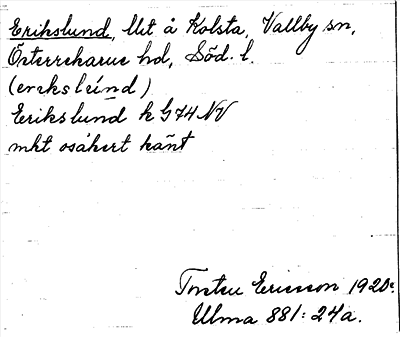 Erikslund, lht å Kolsta, Vallby sn,
Österrekarne hd, Söd. l.
(erikslúnd)
Erikslund k G74 NV
mkt osäkert känt
Torsten Ericsson 1920.
Ulma 881:24a.